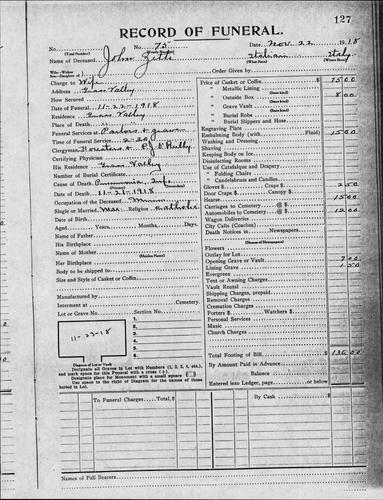 127
RECORD OF FUNERAL.
No. 75 Date, Nov. 22 1918
(Total Number) (Yearly Number)
Name of Deceased, John
(What Race) (Where Born)
Charge to Wife
Address Grass Valley
How Secured
Date of Funeral 11-22-1918
Residence Grass Valley
Place of Death
Funeral Services at Parlors & grave
Time of Funeral Service 2-30
Clergyman
Certifying Physician
His Residence Grass Valley
Number of Burial Certificate
Cause of Death Pneumonia Inf.
(Primary)
Date of Death 11-21-1918
Occupation of the Deceased Miner
Single or Married Mar Religion Catholic
Date of Birth
Aged Years, Months, Days.
Name of Father
His Birthplace
Name of Mother
(Maiden Name)
Her Birthplace
Body to be shipped to
Size and Style of Casket or Coffin
Manufactured by
Interment at Cemetery
Lot or Grave No. Section No.
11-23-18
1.
2.
3.
4.
5.
6.
Diagram of Lot or Vault
Designate all Graves in Lot with Numbers (1, 2, 3, 4, etc.),
and mark space for this Funeral with a cross (+).
Designate place for Monument with a small square
Use space to right of Diagram for the names of those
buried in Lot.
Order Given by
Price of Casket or Coffin $ 75 00
" Metallic Lining
(State kind)
" Outside Box 8 00
(State kind)
" Grave Vault
(State kind)
" Burial Robe
(State kind)
" Burial Slippers and Hose
Engraving Plate
Embalming Body (with Fluid) 15 00
Washing and Dressing
Shaving
Keeping Body on Ice
Disinfecting Rooms
Use of Catafalque and Drapery
" Folding Chairs
" Candelabrum and Candles
Gloves $ Crape $ 2 50
Door Crape $ Canopy $
Hearse 15 00
Carriages to Cemetery @ $
Automobiles to Cemetery @ $ 12 00
Wagon Deliveries
City Calls (Coaches)
Death Notices in Newspapers
(Names of Newspapers)
Flowers
Outlay for Lot
Opening Grave or Vault 7 00
Lining Grave 1 50
Evergreen
Tent or Awning Charges
Vault Rental
Shipping Charges, prepaid
Removal Charges
Cremation Charges
Porters $ Watchers $
Personal Services
Music
Church Charges
Total Footing of Bill $ 136 00
By Amount Paid in Advance
Balance
Entered into Ledger, page or below
To Funeral Charges, Total $
By Cash $
Names of Pall Bearers